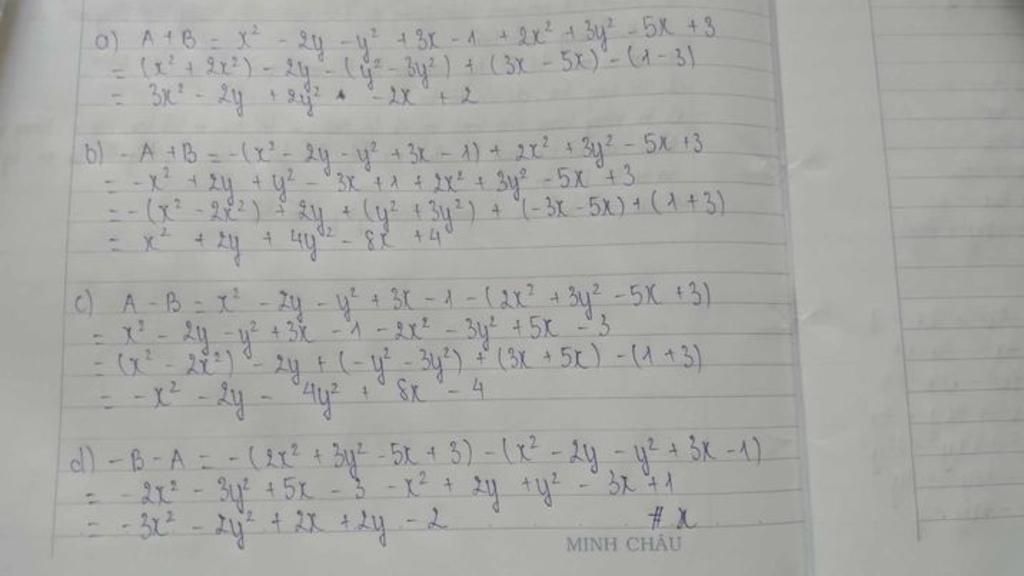 a) A + B = x² - 2y - y² + 3x - 1 + 2x² + 3y² - 5x + 3
= (x² + 2x²) - 2y - (y² - 3y²) + (3x - 5x) - (1 - 3)
= 3x² - 2y + 2y² - 2x + 2
b) - A + B = -(x² - 2y - y² + 3x - 1) + 2x² + 3y² - 5x + 3
= -x² + 2y + y² - 3x + 1 + 2x² + 3y² - 5x + 3
= -(x² - 2x²) + 2y + (y² + 3y²) + (-3x - 5x) + (1 + 3)
= x² + 2y + 4y² - 8x + 4
c) A - B = x² - 2y - y² + 3x - 1 - (2x² + 3y² - 5x + 3)
= x² - 2y - y² + 3x - 1 - 2x² - 3y² + 5x - 3
= (x² - 2x²) - 2y + (-y² - 3y²) + (3x + 5x) - (1 + 3)
= -x² - 2y - 4y² + 8x - 4
d) - B - A = -(2x² + 3y² - 5x + 3) - (x² - 2y - y² + 3x - 1)
= -2x² - 3y² + 5x - 3 - x² + 2y + y² - 3x + 1
= -3x² - 2y² + 2x + 2y - 2 # x
MINH CHÂU